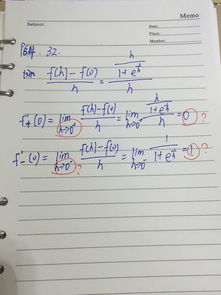 Memo
Subject:
Date:
Place:
Member:
32.
lim
\frac{f(h)-f(0)}{h} = \frac{\frac{h}{1+e^{\frac{1}{h}}}}{h}
f'_+(0) = \lim_{h→0^+} \frac{f(h)-f(0)}{h} = \lim_{h→0^+} \frac{\frac{h}{1+e^{\frac{1}{h}}}}{h} = 0 ?
f'_-(0) = \lim_{h→0^-} \frac{f(h)-f(0)}{h} = \lim_{h→0^-} \frac{1}{1+e^{\frac{1}{h}}} = 1 ?
?